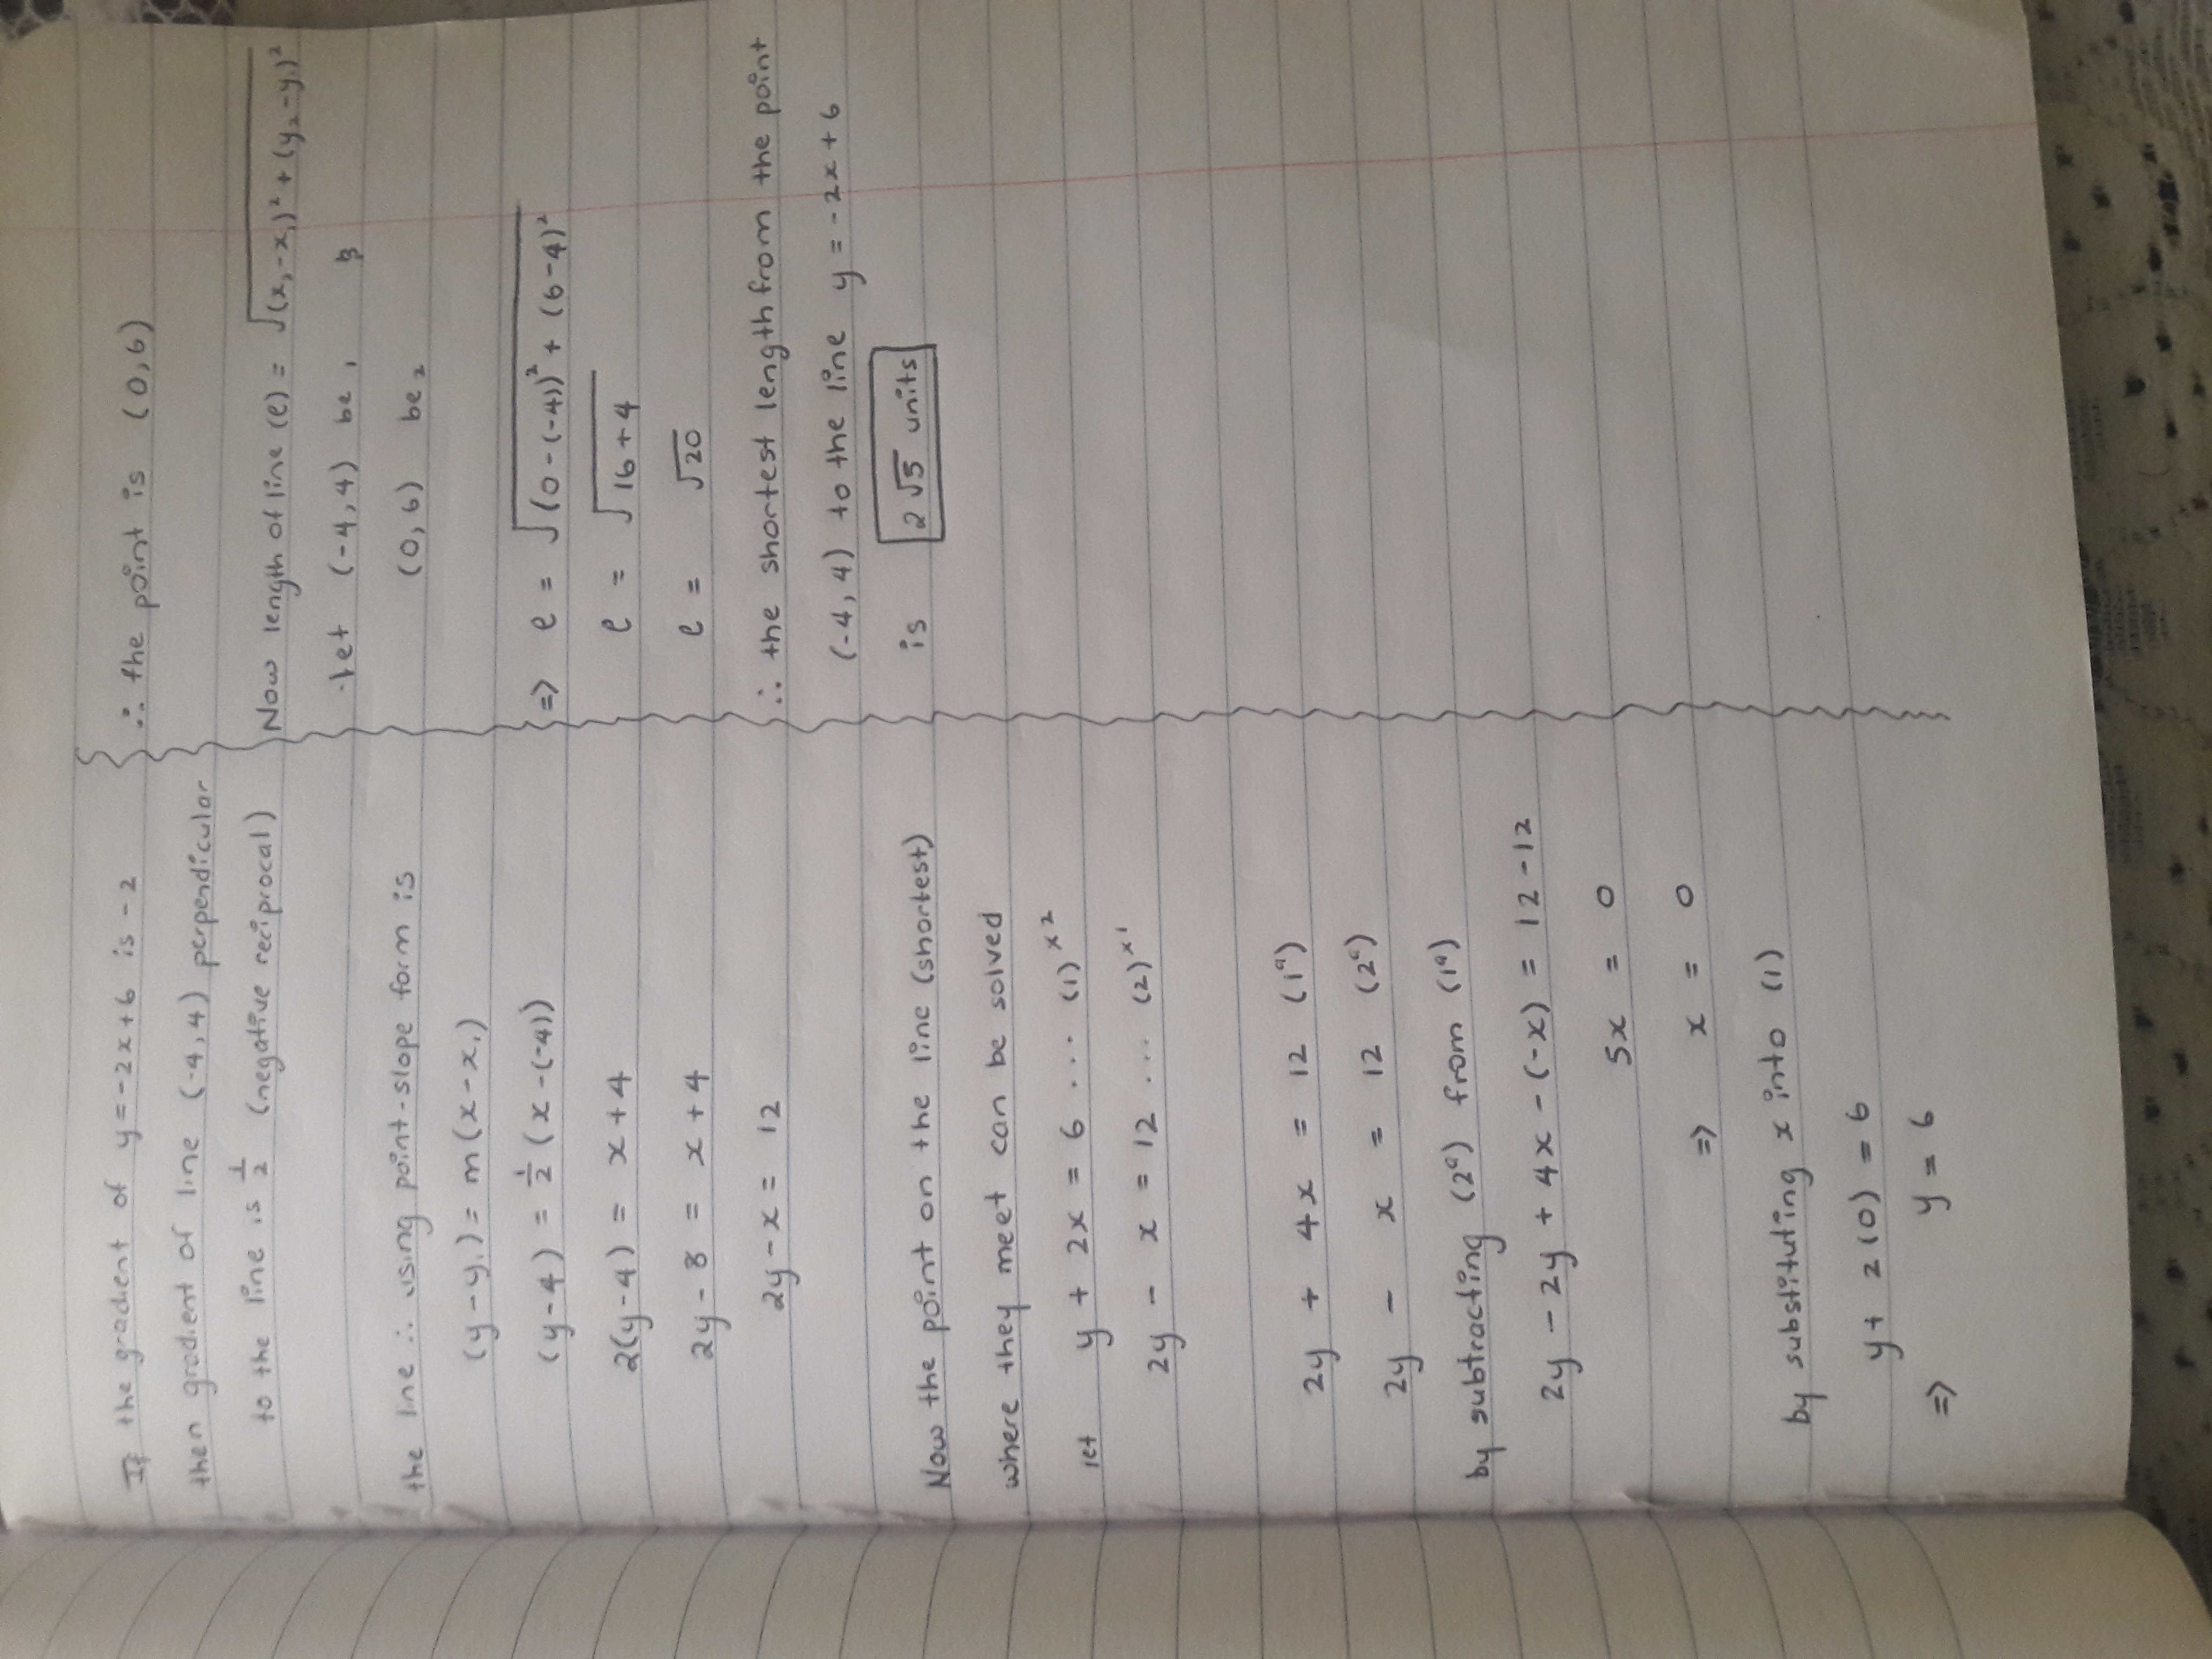 If the gradient of y = -2x+6 is -2
then gradient of line (-4,4) perpendicular
to the line is 1/2 (negative reciprocal)
the line ∴ using point-slope form is
(y-y₁) = m(x-x₁)
(y-4) = 1/2 (x-(-4))
2(y-4) = x+4
2y-8 = x+4
2y-x = 12
Now the point on the line (shortest)
where they meet can be solved
let y + 2x = 6 ... (1) ×2
2y - x = 12 ... (2) ×1
2y + 4x = 12 (1ᵃ)
2y - x = 12 (2ᵃ)
by subtracting (2ᵃ) from (1ᵃ)
2y - 2y + 4x - (-x) = 12-12
5x = 0
=> x = 0
by substituting x into (1)
y + 2(0) = 6
=> y = 6
∴ the point is (0,6)
Now length of line (ℓ) = √(x₂-x₁)² + (y₂-y₁)²
let (-4,4) be 1
(0,6) be 2
=> ℓ = √(0-(-4))² + (6-4)²
ℓ = √16+4
ℓ = √20
∴ the shortest length from the point
(-4,4) to the line y = -2x+6
is 2√5 units